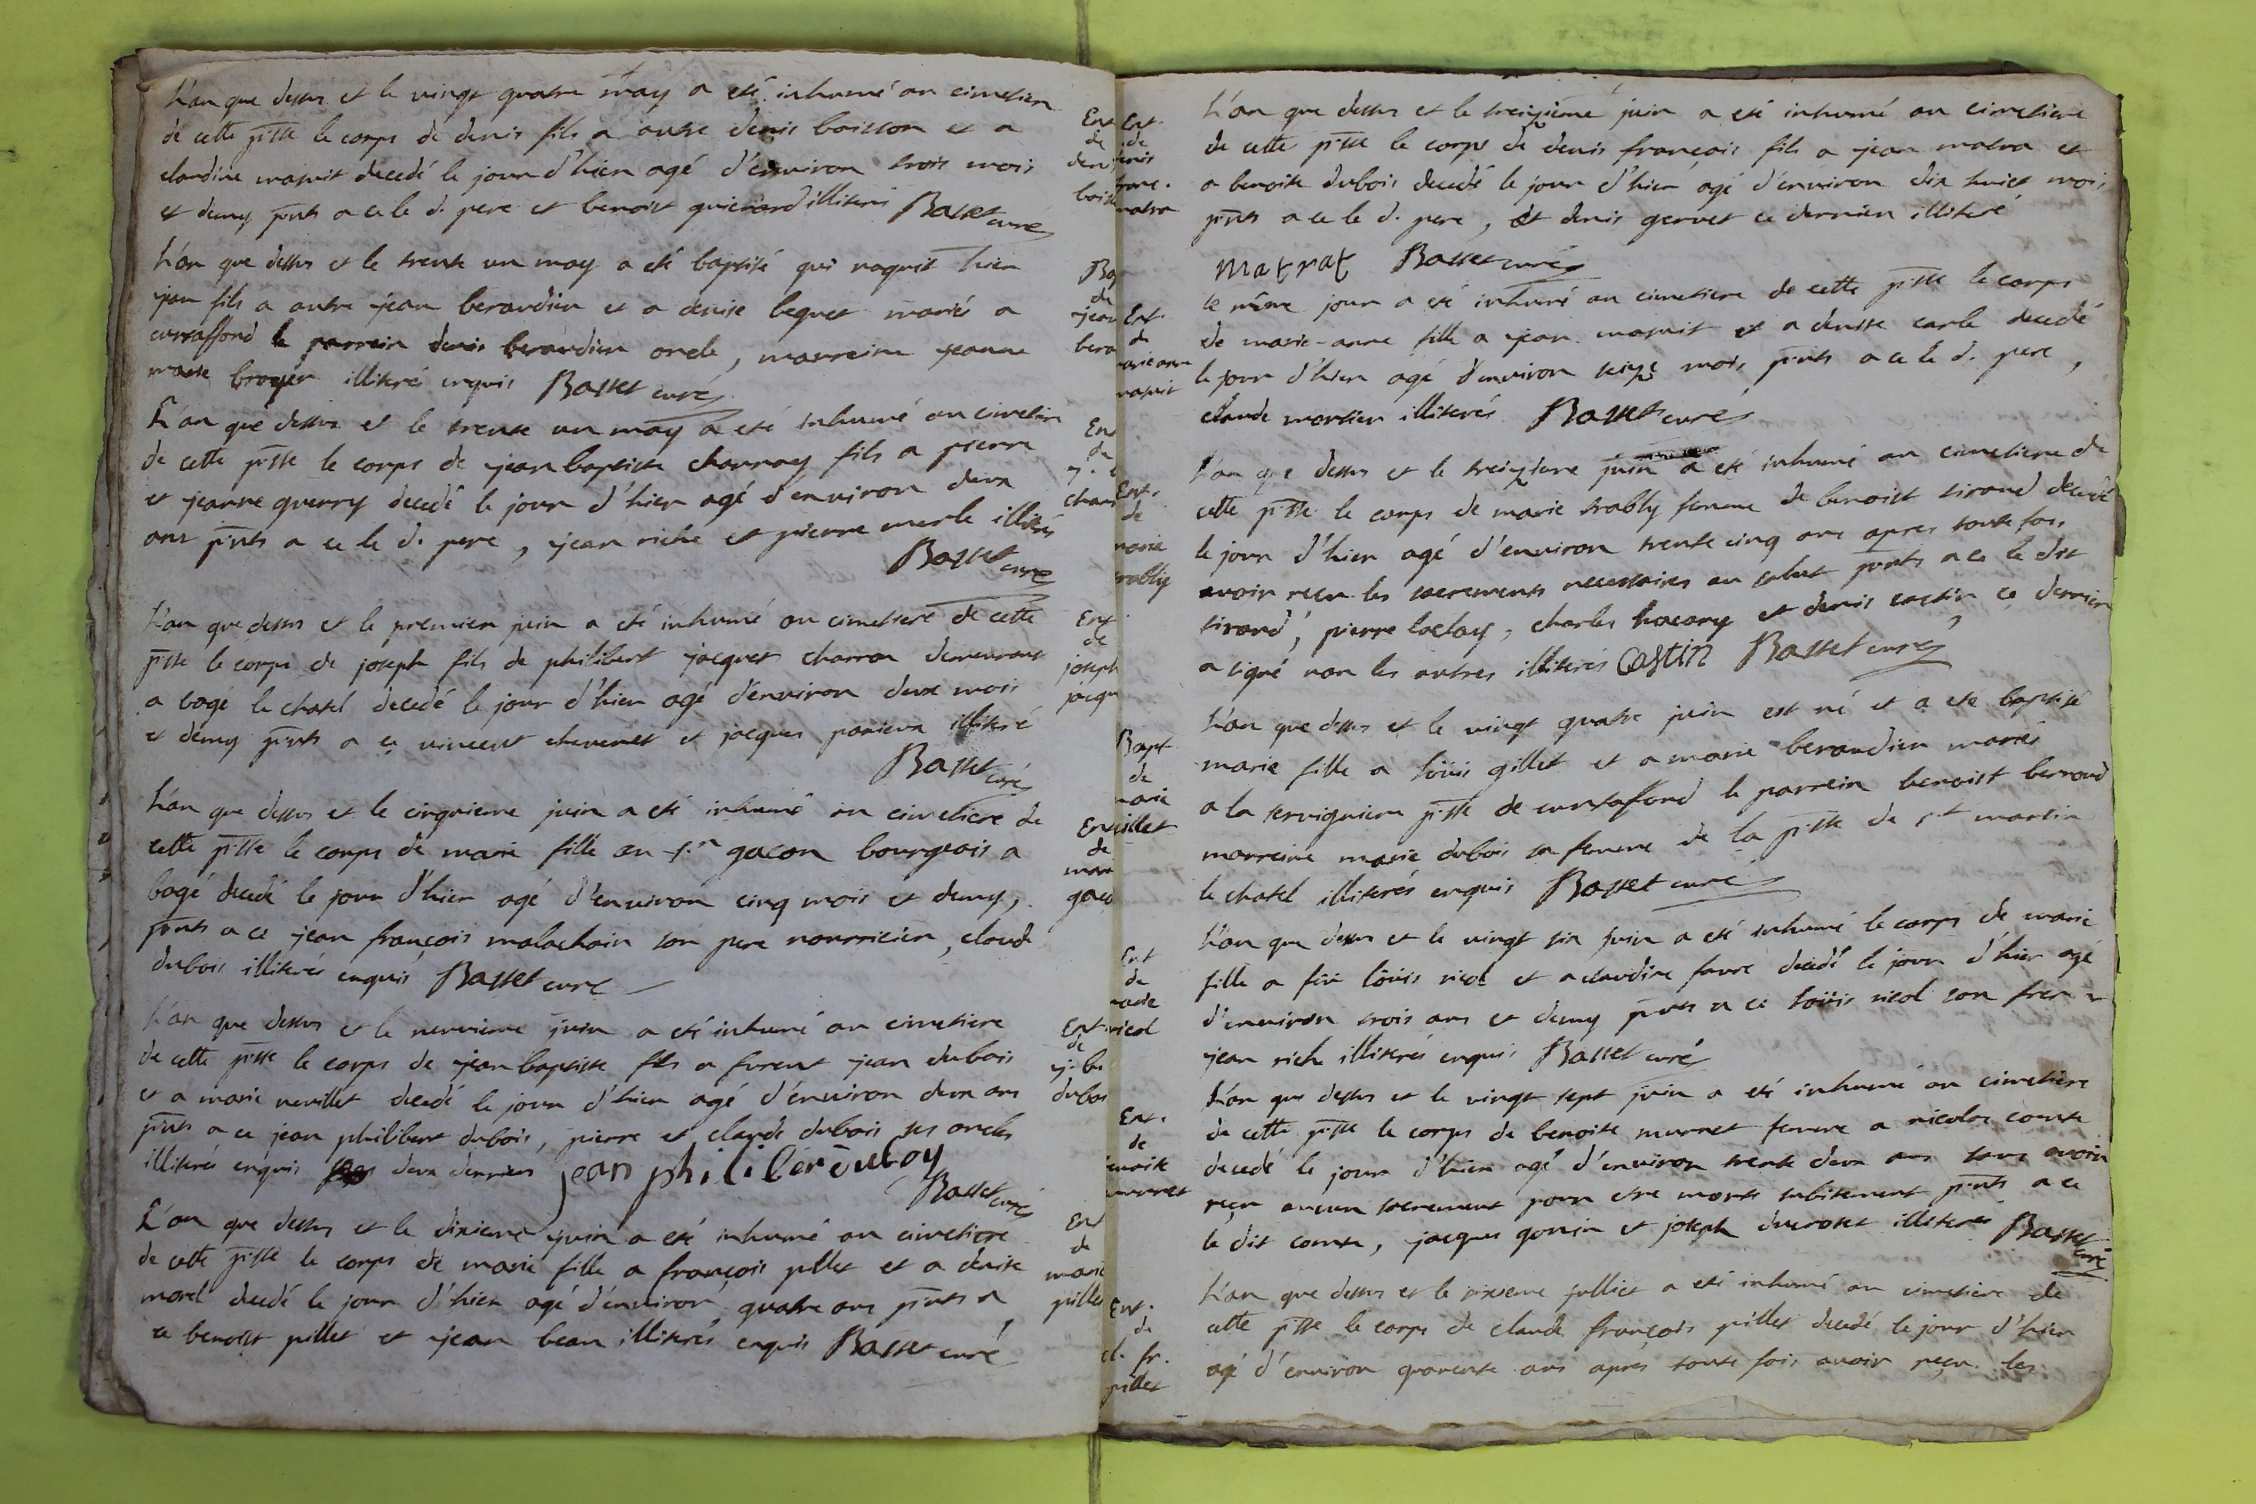 L'an que dessus et le vingt quatre may a eté inhumé au cimetiere
de cette psse le corps de denis fils a autre denis boisson et a
claudine masuit decedé le jour d'hier agé d'environ trois mois
et demy pnts a ce le d. pere et benoist illiterés Basset curé
Ent
de
denis
boiss
L'an que dessus et le trente un may a eté baptisé qui naquit hier
jean fils a autre jean beraudier et a denise bequet mariés a
curtaffond le parrein denis beraudier oncle, marreine jeanne
marie broyer illiterés enquis Basset curé
Bap
de
jean
bera
L'an que dessus et le trente un may a eté inhumé au cimetiere
de cette psse le corps de jean baptiste charnay fils a pierre
et jeanne guerry decedé le jour d'hier agé d'environ deux
ans pnts a ce le d. pere, jean riche et pierre merle illiterés
Basset curé
Ent
de
j. b
char
L'an que dessus et le premier juin a eté inhumé au cimetiere de cette
psse le corps de joseph fils de philibert jacquet charron demeurant
a bagé le chatel decedé le jour d'hier agé d'environ deux mois
et demy pnts a ce vincent chevenet et jacques illiteré
Basset curé
Ent
de
joseph
jacqu
L'an que dessus et le cinquieme juin a eté inhumé au cimetiere de
cette psse le corps de marie fille au sr gacon bourgeois a
bagé decedé le jour d'hier agé d'environ cinq mois et demy,
pnts a ce jean françois malachain son pere nourricier, claude
dubois illiterés enquis Basset curé
Ent
de
mari
gaco
L'an que dessus et le neuvieme juin a eté inhumé au cimetiere
de cette psse le corps de jean baptiste fils a furent jean dubois
et a marie nevillet decedé le jour d'hier agé d'environ deux ans
pnts a ce jean philibert dubois, pierre et claude dubois ses oncles
illiterés enquis deux derniers jean philiber duboy
Basset curé
Ent
de
j. ba
duboi
L'an que dessus et le dixieme juin a eté inhumé au cimetiere
de cette psse le corps de marie fille a françois pillet et a denise
morel decedé le jour d'hier agé d'environ quatre ans pnts a
ce benoist pillet et jean beau illiterés enquis Basset curé
Ent
de
marie
pillet
L'an que dessus et le treizieme juin a eté inhumé au cimetiere
de cette psse le corps de denis françois fils a jean matra et
a benoite dubois decedé le jour d'hier agé d'environ dix huict mois
pnts a ce le d. pere, et denis gervet ce dernier illiteré
matrat Basset curé
Ent.
de
denis
franc.
matra
le même jour a eté inhumé au cimetiere de cette psse le corps
de marie-anne fille a jean masuit et a denise carle decedé
le jour d'hier agé d'environ seize mois, pnts a ce le d. pere,
claude mortier illiterés Basset curé
Ent.
de
marie anne
masuit
L'an que dessus et le treizieme juin a eté inhumé au cimetiere de
cette psse le corps de marie trably femme de benoist tirand decedé
le jour d'hier agé d'environ trente cinq ans apres toute fois
avoir reçu les sacrements necessaires au salut pnts a ce le dit
tirand, pierre loclay, charles hacary et denis castin ce dernier
a signé non les autres illiterés Castin Basset curé
Ent.
de
marie
trably
L'an que dessus et le vingt quatre juin est né et a eté baptisé
marie fille a loüis gillet et a marie beraudier mariés
a la serviguiere psse de curtaffond le parrein benoist berroud
marreine marie dubois sa femme de la psse de st martin
le chatel illiterés enquis Basset curé
Bapt
de
marie
gillet
L'an que dessus et le vingt six juin a eté inhumé le corps de marie
fille a feu loüis nicol et a claudine favre decedé le jour d'hier agé
d'environ trois ans et demy pnts a ce loüis nicol son frere
jean riche illiterés enquis Basset curé
Ent
de
marie
nicol
L'an que dessus et le vingt sept juin a eté inhumé au cimetiere
de cette psse le corps de benoite murret femme a nicolas comte
decedé le jour d'hier agé d'environ trente deux ans sans avoir
reçu aucun sacrement pour etre morte subitement pnts a ce
le dit comte, jacques gonin et joseph ducroset illiterés Basset curé
Ent.
de
benoite
murret
L'an que dessus et le sixieme julliet a eté inhumé au cimetiere de
cette psse le corps de claude françois pillet decedé le jour d'hier
agé d'environ quarente ans aprés toute fois avoir reçu les
Ent.
de
cl. fr.
pillet